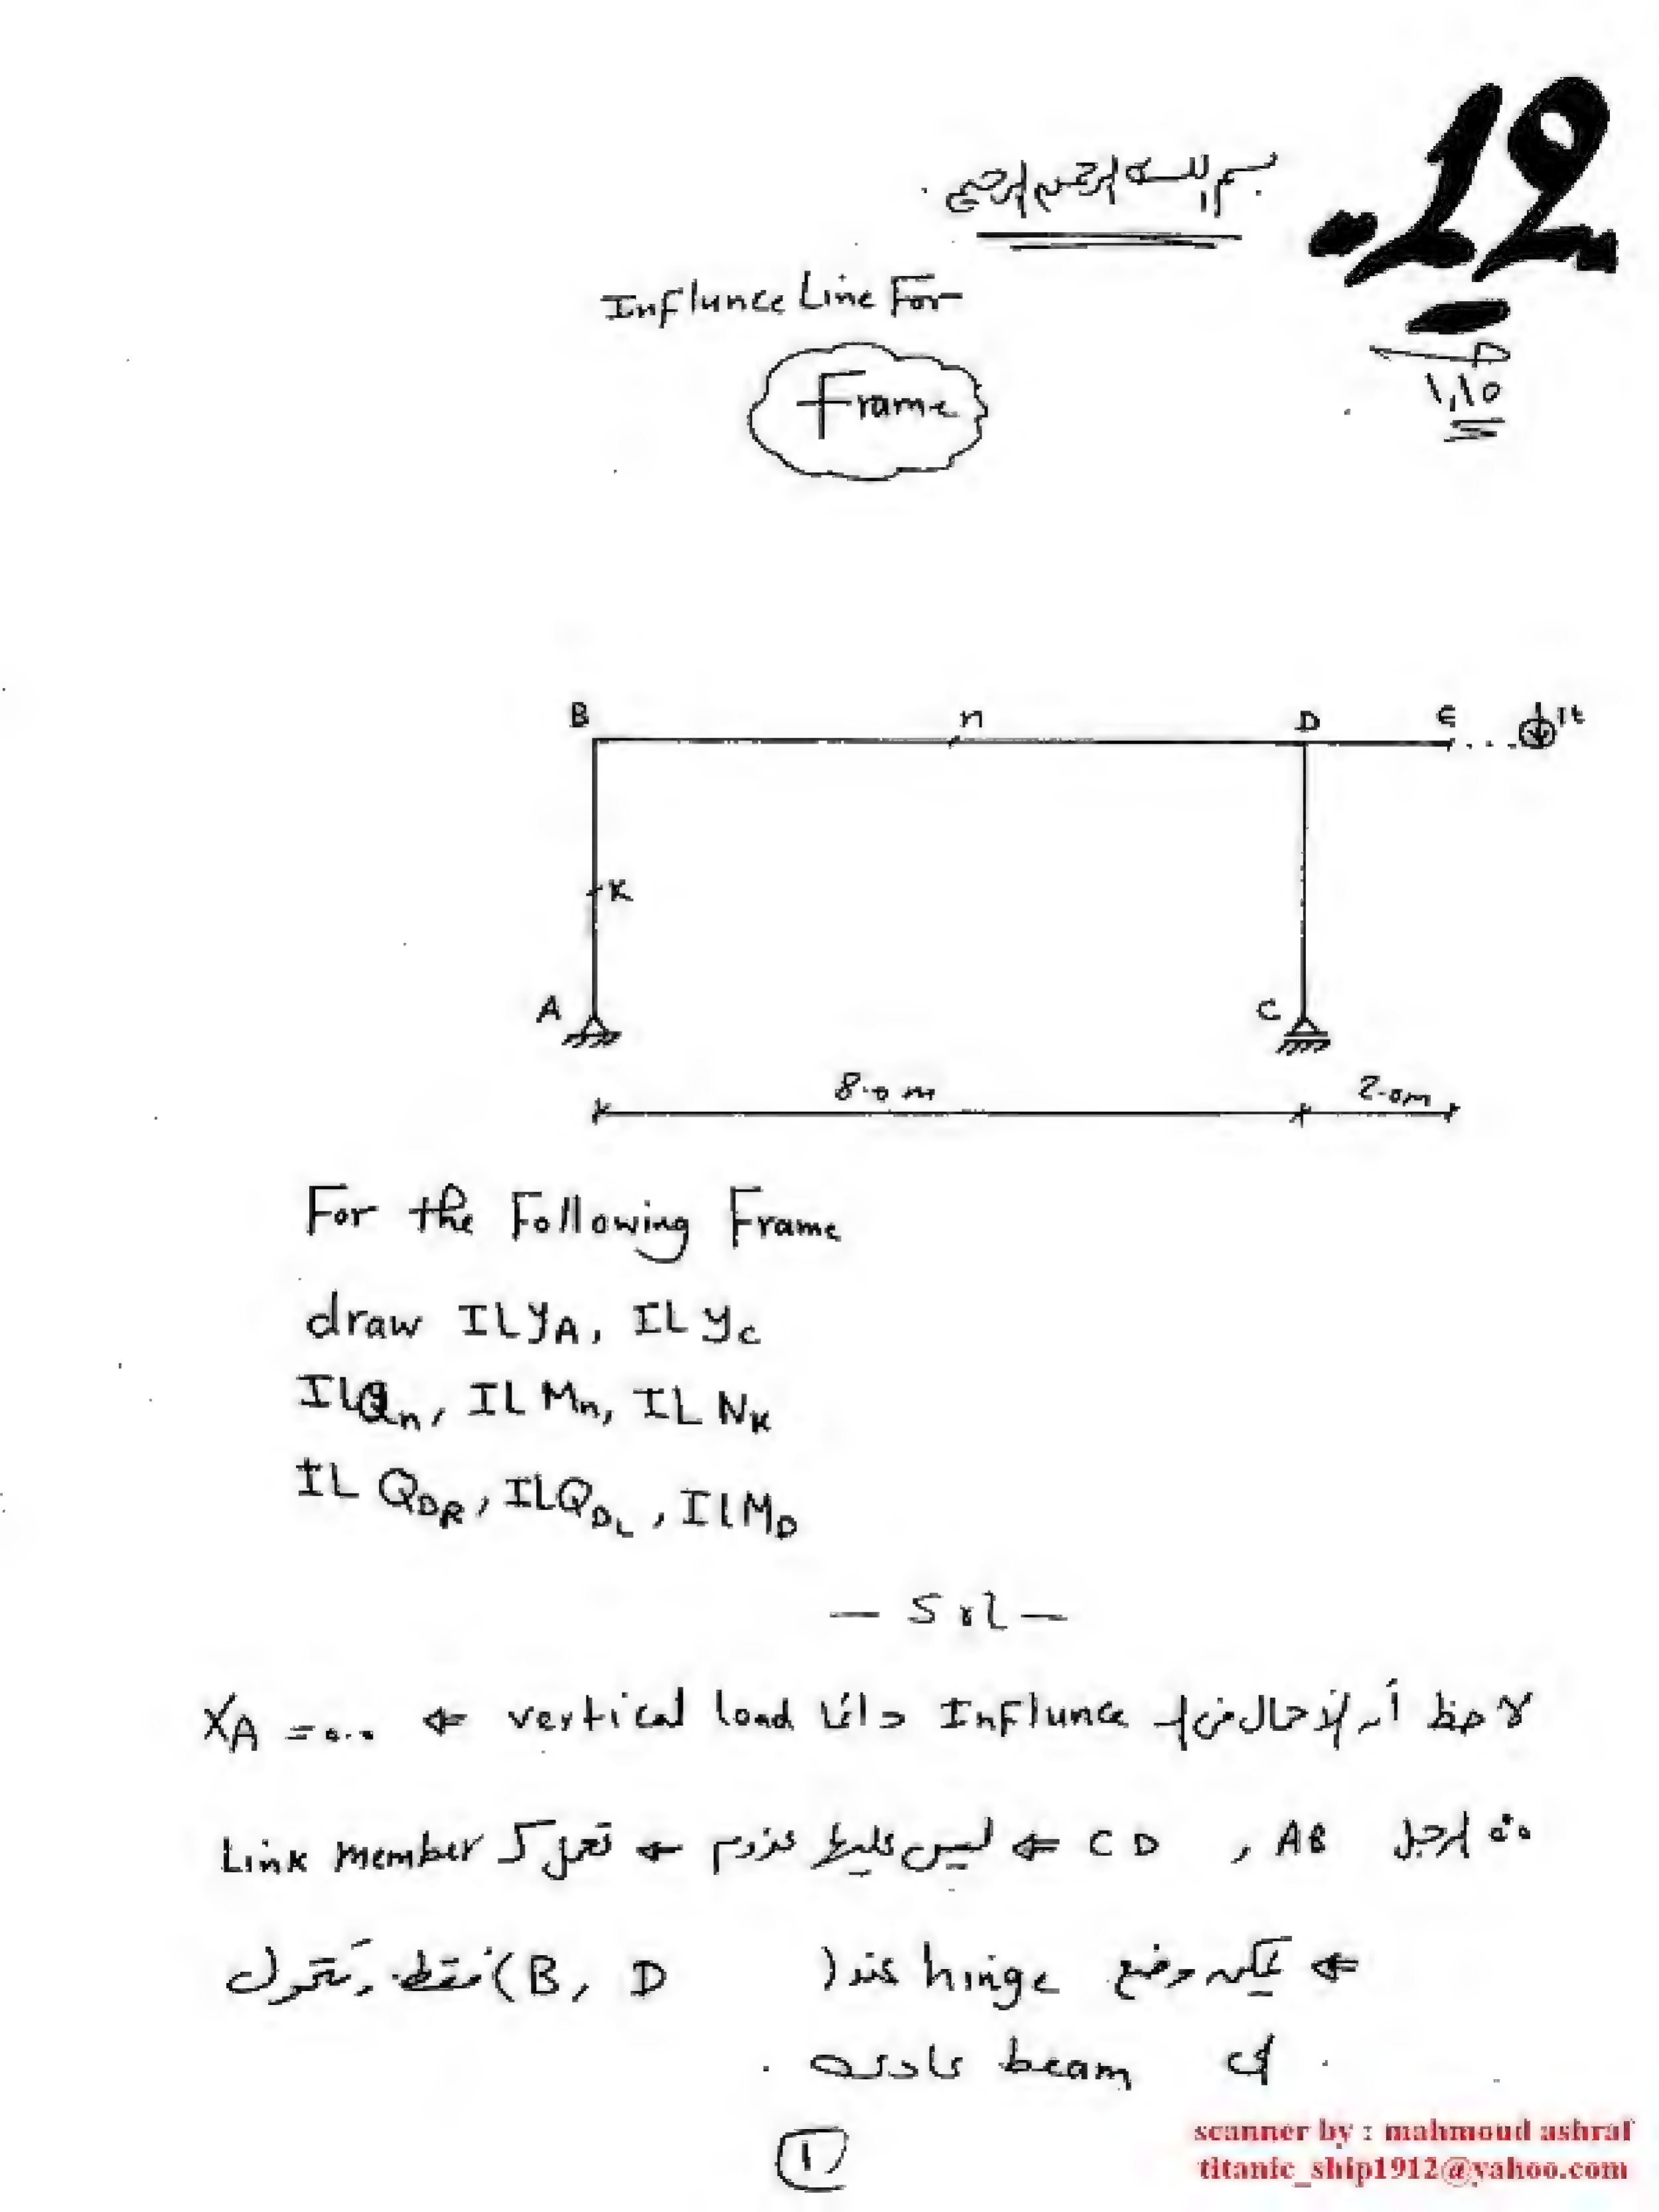 بسم الله الرحمن الرحيم
.12.
Influnce Line For
١,١٥
Frame
B n D E 1t
K
A C
8.0 m 2.0m
For the Following Frame
draw IL yA, IL yC
ILQn, IL Mn, IL NK
IL QDR, ILQDL, ILMD
— Sol —
لاحظ أن الأحمال في الـ Influnce دائما vertical load ⇐ XA = 0.0
الرجل AB , CD ⇐ ليس عليها عزوم ⇐ تعمل كـ Link member
⇐ يمكن وضع hinge عند (B, D) فقط وتتحول
الى beam عادية .
1
scanner by : mahmoud ashraf
titanic_ship1912@yahoo.com